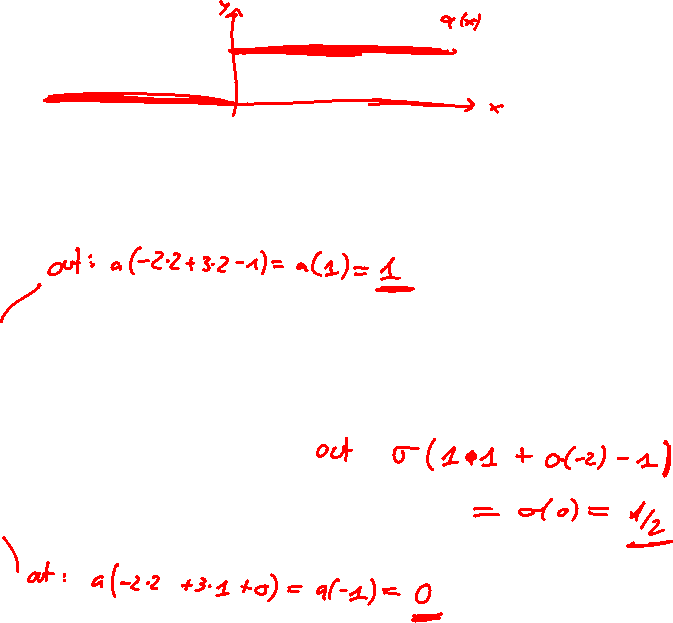 y
a(x)
x
out: a(-2·2+3·2-1)= a(1)= 1
out σ(1·1 + 0(-2)-1)
= σ(0)= 1/2
out: a(-2·2 +3·1+0)= a(-1)= 0